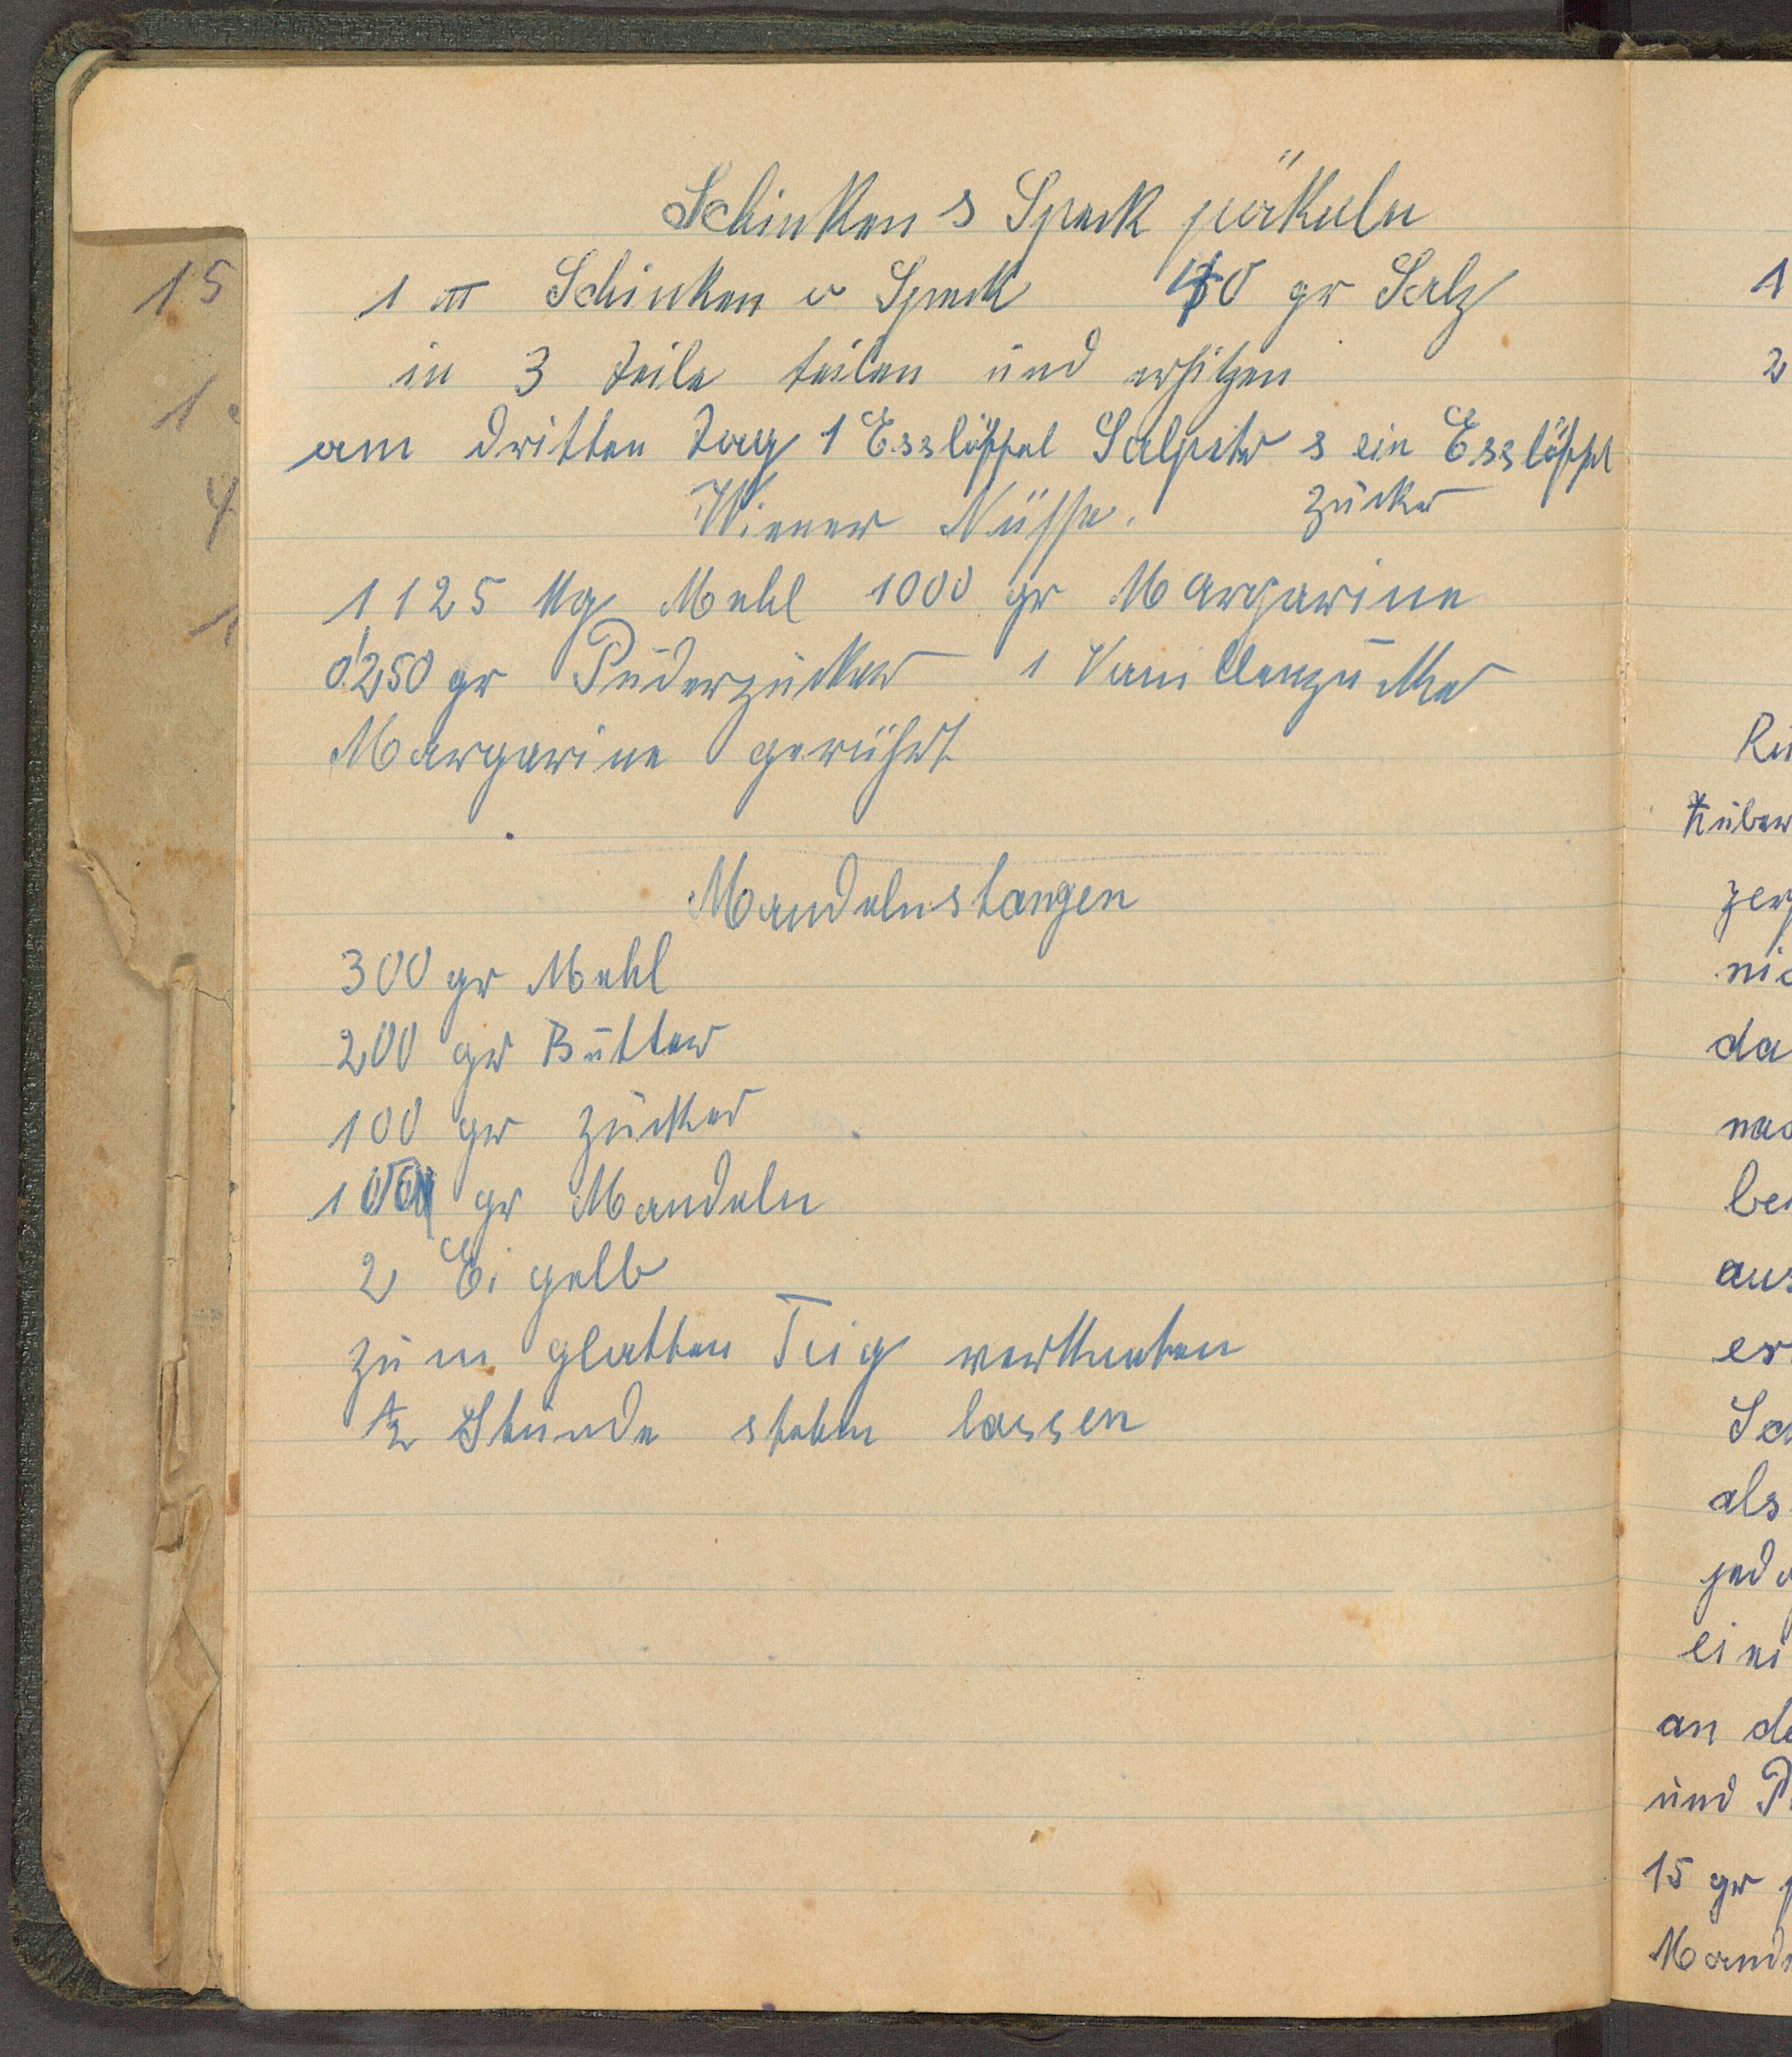 Schinken & Speck pökeln
1 ℔ Schinken o Speck 40 gr Salz
in 3 Teile teilen und erhitzen
am dritten Tag 1 Esslöffel Salpeter & ein Esslöffel
Zucker
Wiener Nüsse.
1,125 Kg Mehl 1000 gr Margarine
0,250 gr Puderzucker 1 Vanillenzucker
Margarine gerührt
Mandelnstangen
300 gr Mehl
200 gr Butter
100 gr Zucker
100 gr Mandeln
2 Eigelb
zum glatten Teig verkneten
½ Stunde stehen lassen
15
1
4
1
1
2
da
aus
er
als
an de
und
15 gr